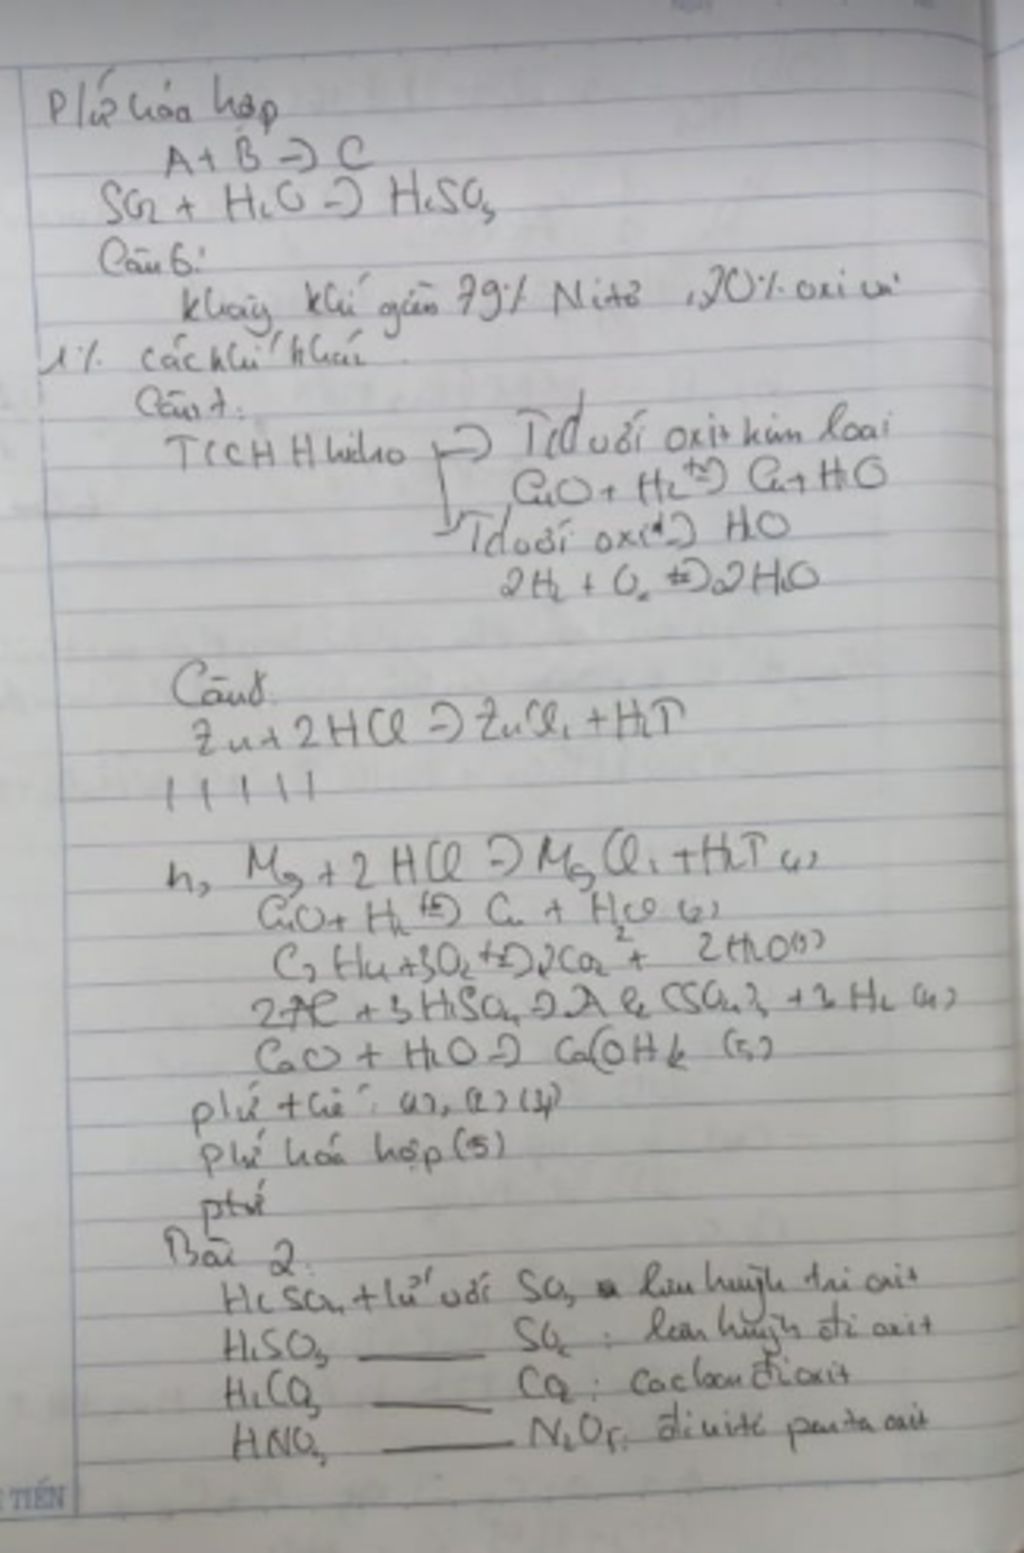 Pứ hóa hợp
A + B → C
SO2 + H2O → H2SO3
Câu 6:
Không khí gồm 79% Nitơ, 20% oxi và
1% các khí khác
Câu 7:
TCHH Hidro → Td với oxit kim loại
CuO + H2 t°→ Cu + H2O
Td với oxi → H2O
2H2 + O2 t°→ 2H2O
Câu 8
Zn + 2HCl → ZnCl2 + H2↑
Mg + 2HCl → MgCl2 + H2↑ (1)
CuO + H2 t°→ Cu + H2O (2)
C2H4 + 3O2 t°→ 2CO2 + 2H2O (3)
2Al + 3H2SO4 → Al2(SO4)3 + 3H2 (4)
CaO + H2O → Ca(OH)2 (5)
pứ thế: (1), (2), (4)
pứ hóa hợp (5)
Bài 2:
H2SO4 t/ứ với SO3: lưu huỳnh tri oxit
H2SO3 —— SO2: lưu huỳnh đi oxit
H2CO3 —— CO2: cacbon đioxit
HNO3 —— N2O5: đinitơ penta oxit
TIẾN